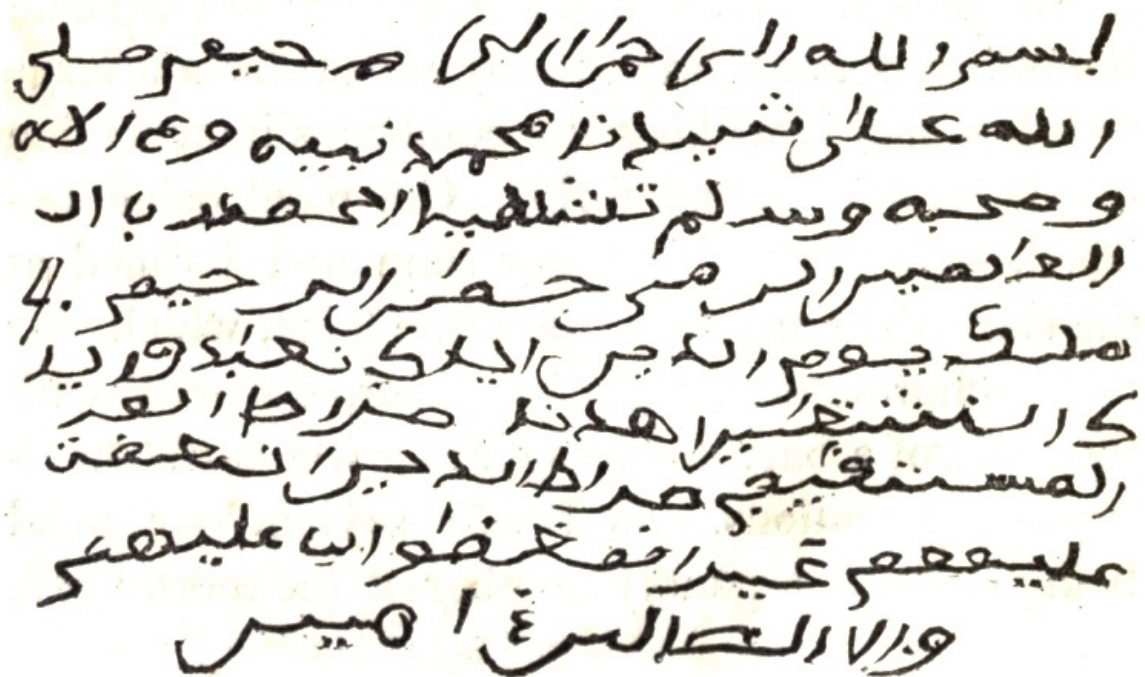 بسم الله الرحمن الرحيم صلى
الله على سيدنا محمد نبيه وع الاه
وصحبه وسلم تسليما الحمد باال
العالمين الرحمن الرحيم 4.
ملك يوم الدين اياك نعبد وايا
ك نستعين اهدنا صراط العر
المستقيم صراط الدين انعمت
عليهم غير المغضواب عليهم
ولا الضالين ءامين